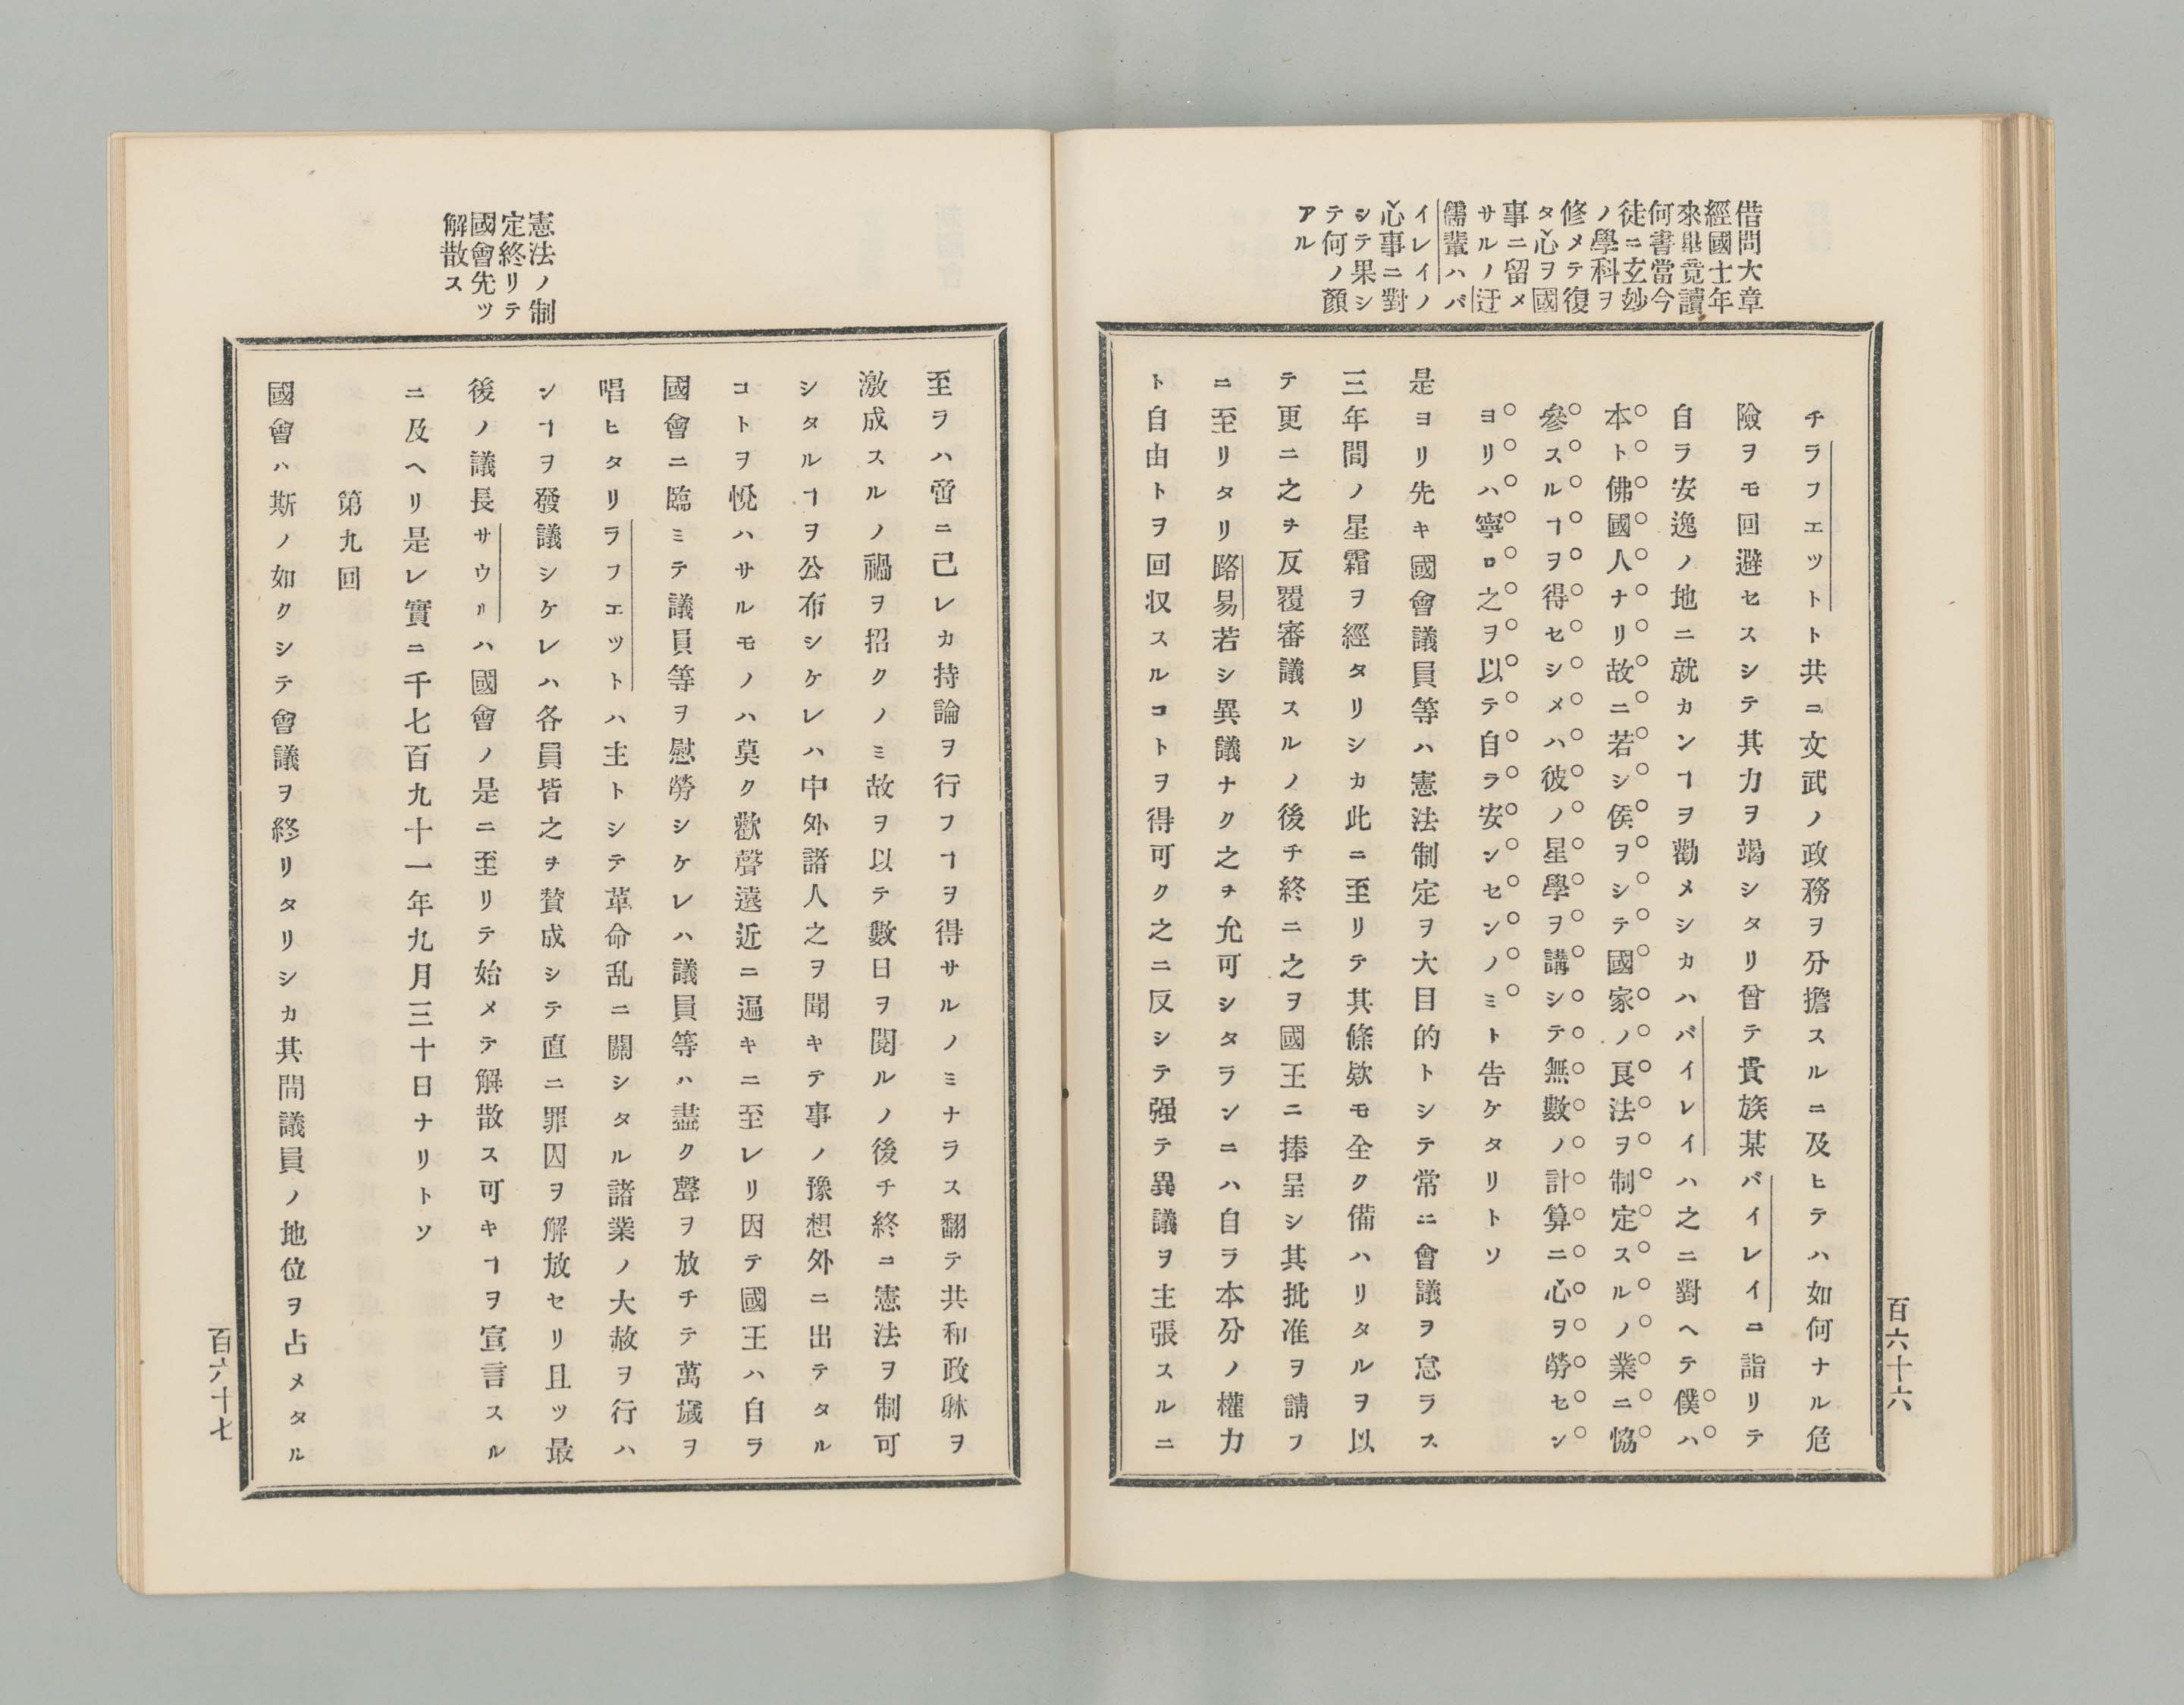 借問大章
經國士年
來畢竟讀
何書當今
徒ニ玄妙
ノ學科ヲ
修メテ復
タ心ヲ國
事ニ留メ
サルノ迂
儒輩ハバ
イレイノ
心事ニ對
シテ果シ
テ何ノ顏
アル
百六十六
チラフエットト共ニ文武ノ政務ヲ分擔スルニ及ヒテハ如何ナル危
險ヲモ回避セスシテ其力ヲ竭シタリ曾テ貴族某バイレイニ詣リテ
自ラ安逸ノ地ニ就カンヿヲ勸メシカハバイレイハ之ニ對ヘテ僕ハ
本ト佛國人ナリ故ニ若シ侯ヲシテ國家ノ良法ヲ制定スルノ業ニ恊
參スルヿヲ得セシメハ彼ノ星學ヲ講シテ無數ノ計算ニ心ヲ勞セン
ヨリハ寧ロ之ヲ以テ自ラ安ンセンノミト告ケタリトソ
是ヨリ先キ國會議員等ハ憲法制定ヲ大目的トシテ常ニ會議ヲ怠ラス
三年間ノ星霜ヲ經タリシカ此ニ至リテ其條欵モ全ク備ハリタルヲ以
テ更ニ之ヲ反覆審議スルノ後チ終ニ之ヲ國王ニ捧呈シ其批准ヲ請フ
ニ至リタリ路易若シ異議ナク之ヲ允可シタランニハ自ラ本分ノ權力
ト自由トヲ回収スルコトヲ得可ク之ニ反シテ强テ異議ヲ主張スルニ
憲法ノ制
定終リテ
國會先ッ
解散ス
至ラハ啻ニ己レカ持論ヲ行フヿヲ得サルノミナラス翻テ共和政躰ヲ
激成スルノ禍ヲ招クノミ故ヲ以テ數日ヲ閲ルノ後チ終ニ憲法ヲ制可
シタルヿヲ公布シケレハ中外諸人之ヲ聞キテ事ノ豫想外ニ出テタル
コトヲ悅ハサルモノハ莫ク歡聲遠近ニ遍キニ至レリ因テ國王ハ自ラ
國會ニ臨ミテ議員等ヲ慰勞シケレハ議員等ハ盡ク聲ヲ放チテ萬歲ヲ
唱ヒタリラフエットハ主トシテ革命乱ニ關シタル諸業ノ大赦ヲ行ハ
ンヿヲ發議シケレハ各員皆之ヲ賛成シテ直ニ罪囚ヲ解放セリ且ツ最
後ノ議長サウリハ國會ノ是ニ至リテ始メテ解散ス可キヿヲ宣言スル
ニ及ヘリ是レ實ニ千七百九十一年九月三十日ナリトソ
第九回
國會ハ斯ノ如クシテ會議ヲ終リタリシカ其間議員ノ地位ヲ占メタル
百六十七